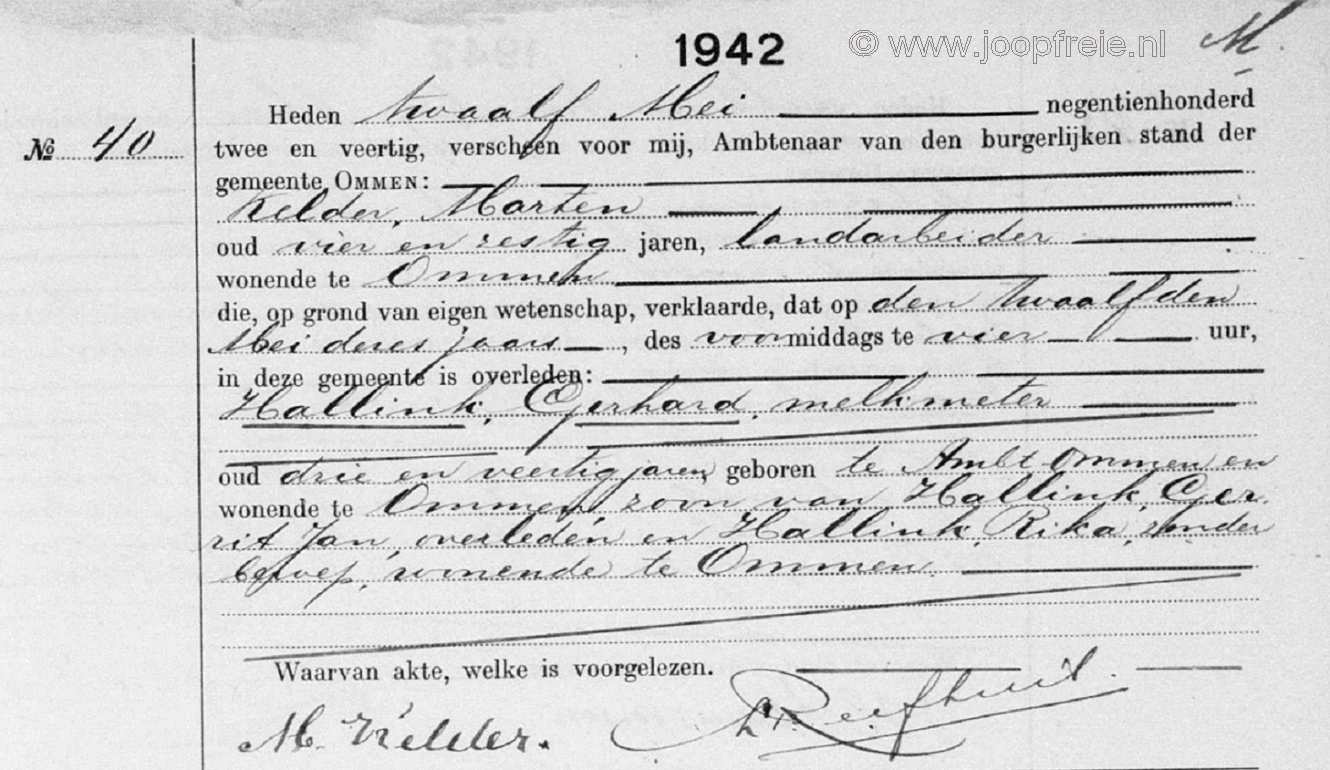 1942
© www.joopfreie.nl
M
Heden twaalf Mei negentienhonderd
№ 40
twee en veertig, verscheen voor mij, Ambtenaar van den burgerlijken stand der
gemeente OMMEN:
Kelder, Marten
oud vier en zestig jaren, landarbeider
wonende te Ommen
die, op grond van eigen wetenschap, verklaarde, dat op den twaalfden
Mei dezes jaars, des voormiddags te vier uur,
in deze gemeente is overleden:
Hallink, Gerhard, melkmeter
oud drie en veertig jaren, geboren te Ambt Ommen en
wonende te Ommen, zoon van Hallink, Ger
rit Jan, overleden en Hallink, Rika, zonder
beroep, wonende te Ommen.
Waarvan akte, welke is voorgelezen.
M. Kelder.